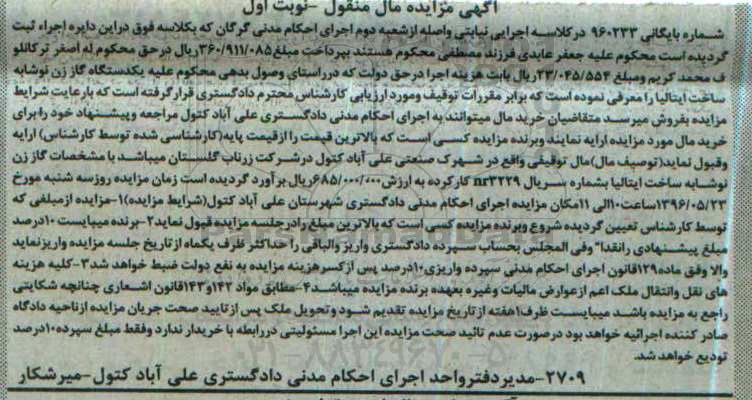 آگهی مزایده مال منقول -نوبت اول
شماره بایگانی ۹۶۰۲۳۳ درکلاسه اجرایی نیابتی واصله ازشعبه دوم اجرای احکام مدنی گرگان که بکلاسه فوق دراین دایره اجراء ثبت
گردیده است محکوم علیه جعفر عابدی فرزند مصطفی محکوم هستند بپرداخت مبلغ ۳۶۰/۹۱۱/۰۸۵ریال درحق محکوم له اصغر ترکانلو
ف محمد کریم ومبلغ ۲۳/۰۴۵/۵۵۴ریال بابت هزینه اجرا درحق دولت که درراستای وصول بدهی محکوم علیه یکدستگاه گاز زن نوشابه
ساخت ایتالیا را معرفی نموده است که برابر مقررات توقیف ومورد ارزیابی کارشناس محترم دادگستری قرار گرفته است که بارعایت شرایط
مزایده بفروش میرسد متقاضیان خرید مال میتوانند به اجرای احکام مدنی دادگستری علی آباد کتول مراجعه وپیشنهاد خود را برای
خرید مال مورد مزایده ارایه نمایند وبرنده مزایده کسی است که بالاترین قیمت را ازقیمت پایه(کارشناسی شده توسط کارشناس) ارایه
وقبول نماید(توصیف مال)مال توقیفی واقع در شهرک صنعتی علی آباد کتول درشرکت زرناب گلستان میباشد با مشخصات گاز زن
نوشابه ساخت ایتالیا بشماره سریال nr۳۲۲۹ کارکرده به ارزش ۶۸۵/۰۰۰/۰۰۰ریال برآورد گردیده است زمان مزایده روزسه شنبه مورخ
۱۳۹۶/۰۵/۲۳ساعت۱۰الی ۱۱مکان مزایده اجرای احکام مدنی دادگستری شهرستان علی آباد کتول(شرایط مزایده)۱-مزایده ازمبلغی که
توسط کارشناس تعیین گردیده شروع وبرنده مزایده کسی است که بالاترین مبلغ رادرجلسه مزایده قبول نماید۲-برنده میبایست ۱۰درصد
مبلغ پیشنهادی رانقدا" وفی المجلس بحساب سپرده دادگستری واریز والباقی را حداکثر ظرف یکماه ازتاریخ جلسه مزایده واریزنماید
والا وفق ماده۱۲۹قانون اجرای احکام مدنی سپرده واریزی۱۰درصد پس ازکسرهزینه مزایده به نفع دولت ضبط خواهد شد۳-کلیه هزینه
های نقل وانتقال ملک اعم ازعوارض مالیات وغیره بعهده برنده مزایده میباشد۴-مطابق مواد ۱۴۲و۱۴۳قانون اشعاری چنانچه شکایتی
راجع به مزایده باشد میبایست ظرف۱هفته ازتاریخ مزایده تقدیم شود وتحویل ملک پس ازتایید صحت جریان مزایده ازناحیه دادگاه
صادر کننده اجرائیه خواهد بود درصورت عدم تائید صحت مزایده این اجرا مسئولیتی دررابطه با خریدار ندارد وفقط مبلغ سپرده۱۰درصد
تودیع خواهد شد.
۲۷۰۹-مدیردفترواحد اجرای احکام مدنی دادگستری علی آباد کتول-میرشکار